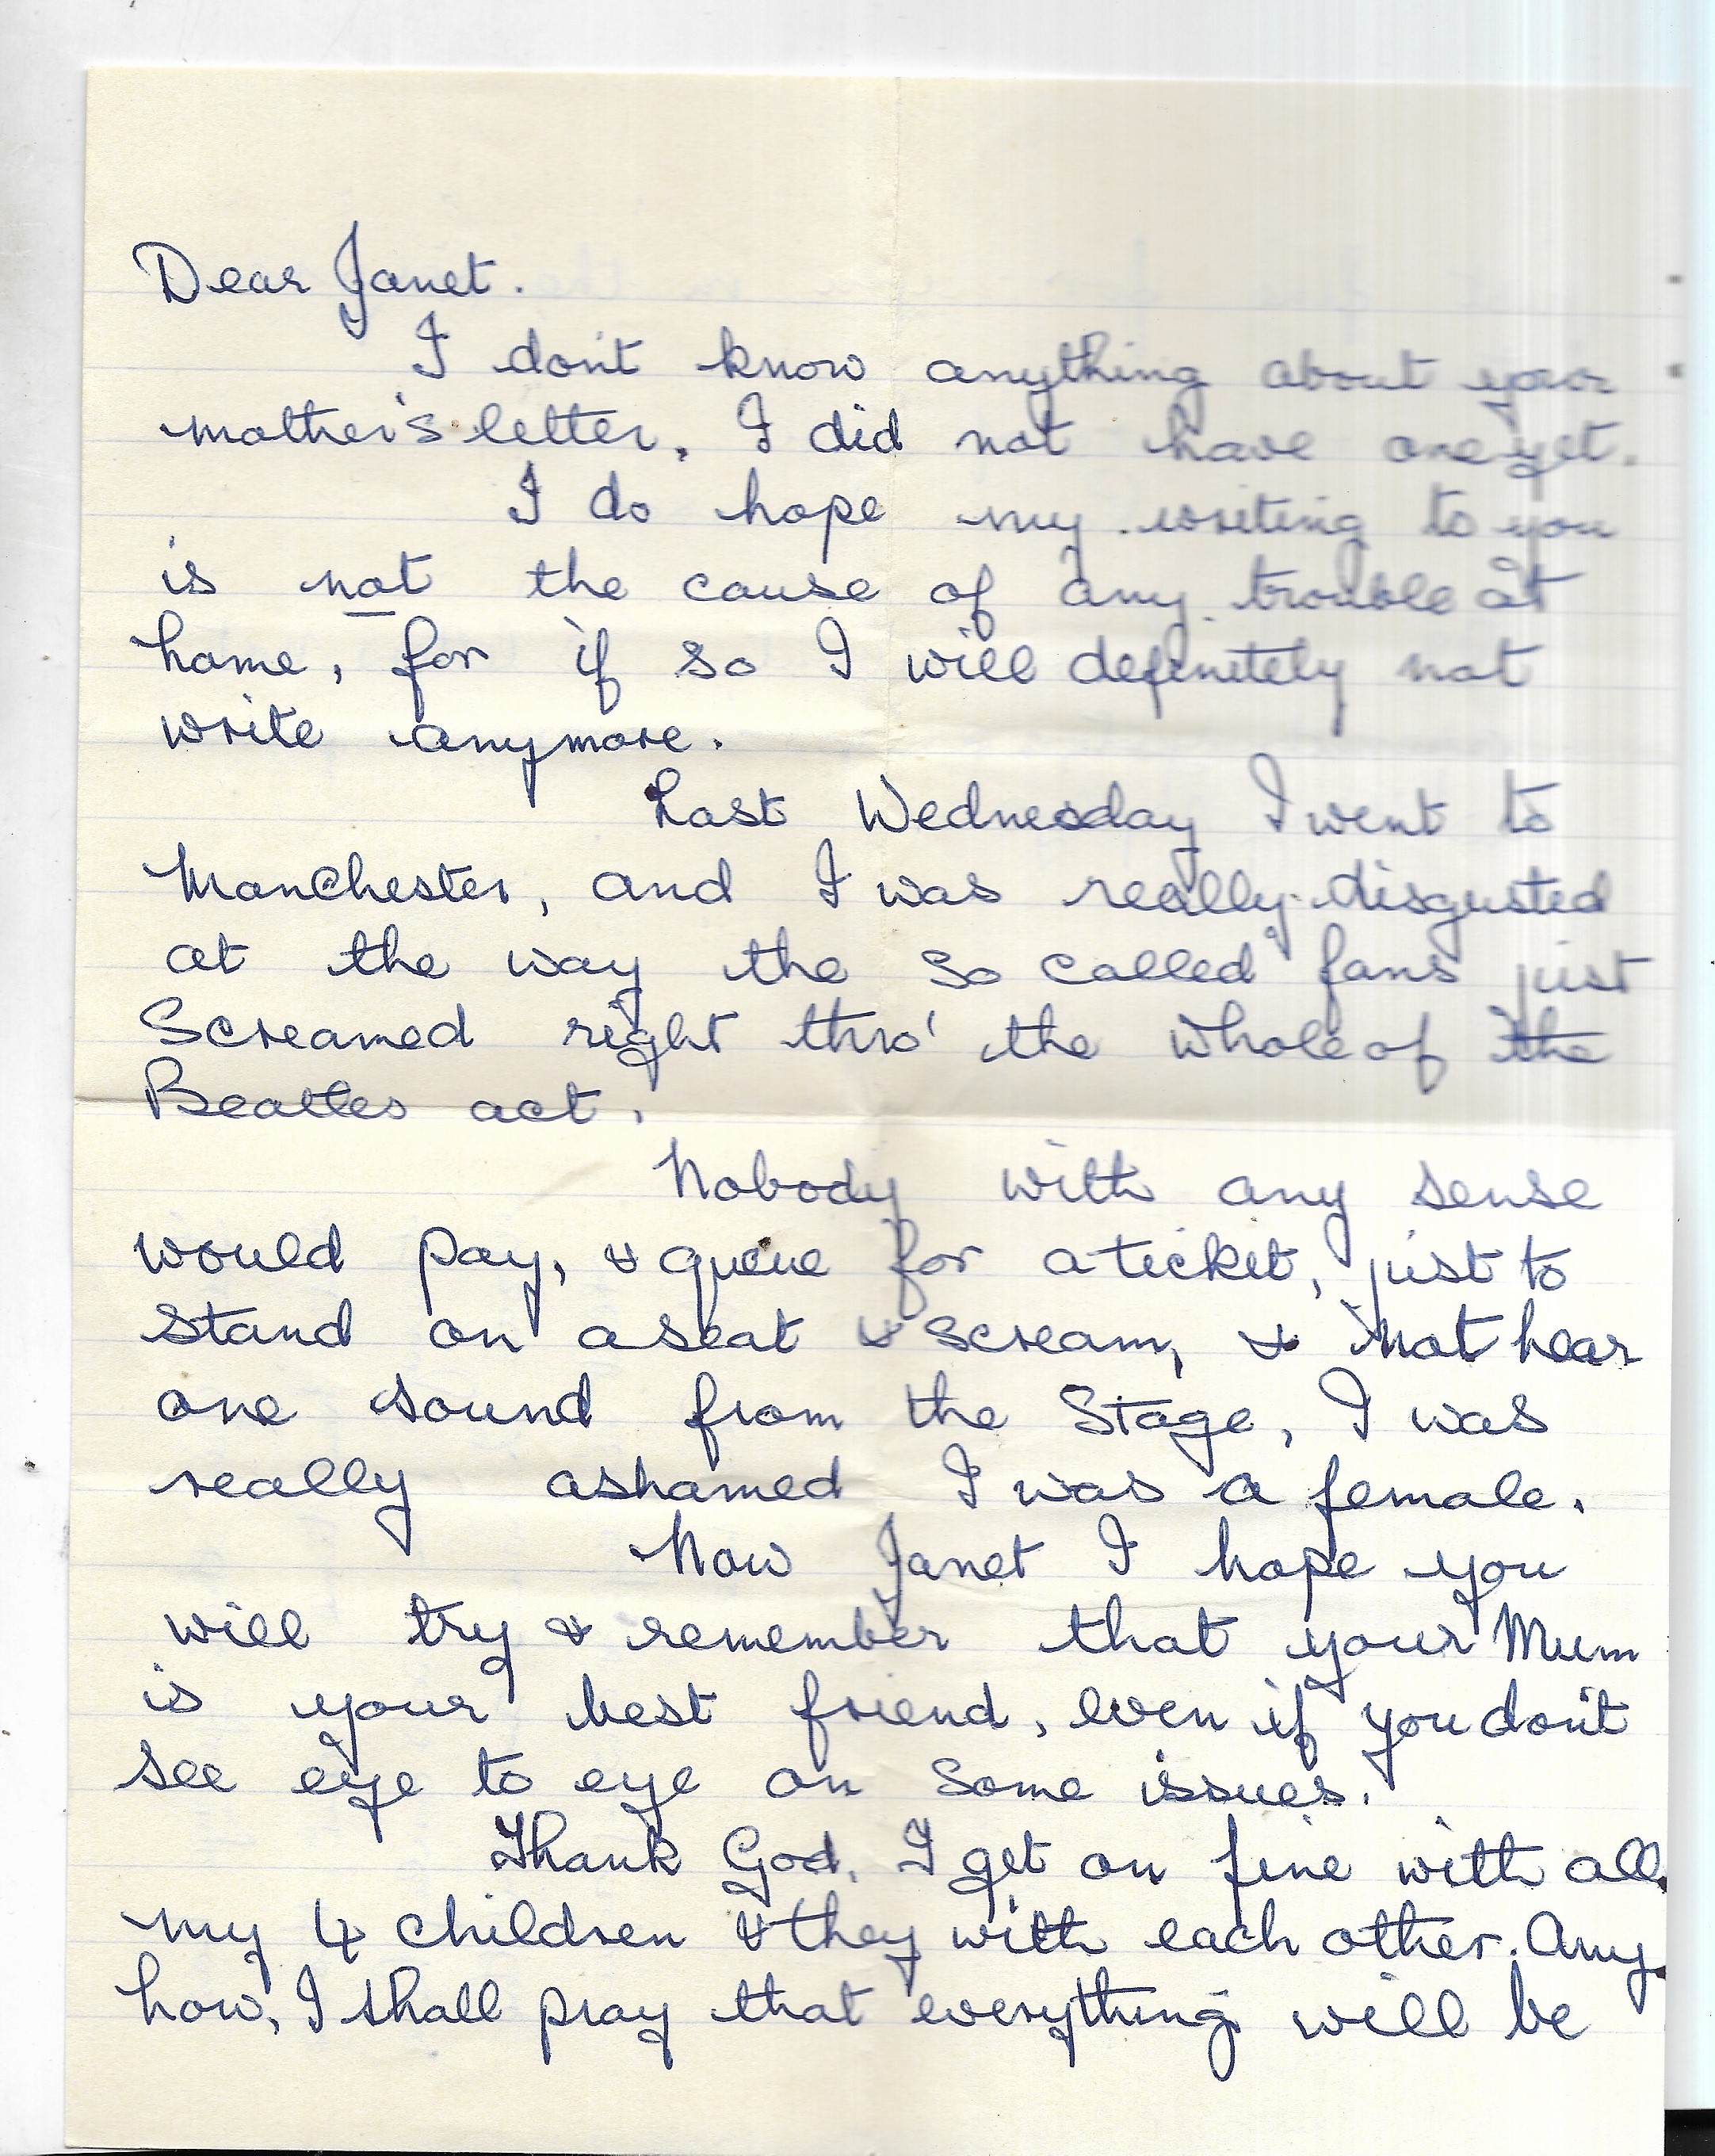 Dear Janet.
I don't know anything about your
mother's letter, I did not have one yet.
I do hope my writing to you
is not the cause of any trouble at
home, for if so I will definitely not
write anymore.
Last Wednesday I went to
Manchester, and I was really disgusted
at the way the so called fans just
Screamed right thro' the whole of the
Beatles act.
Nobody with any sense
would pay, & queue for a ticket, just to
stand on a seat & scream, & not hear
one sound from the Stage, I was
really ashamed I was a female.
Now Janet I hope you
will try & remember that your Mum
is your best friend, even if you don't
see eye to eye on some issues.
Thank God, I get on fine with all
my 4 children & they with each other. Any
how, I shall pray that everything will be